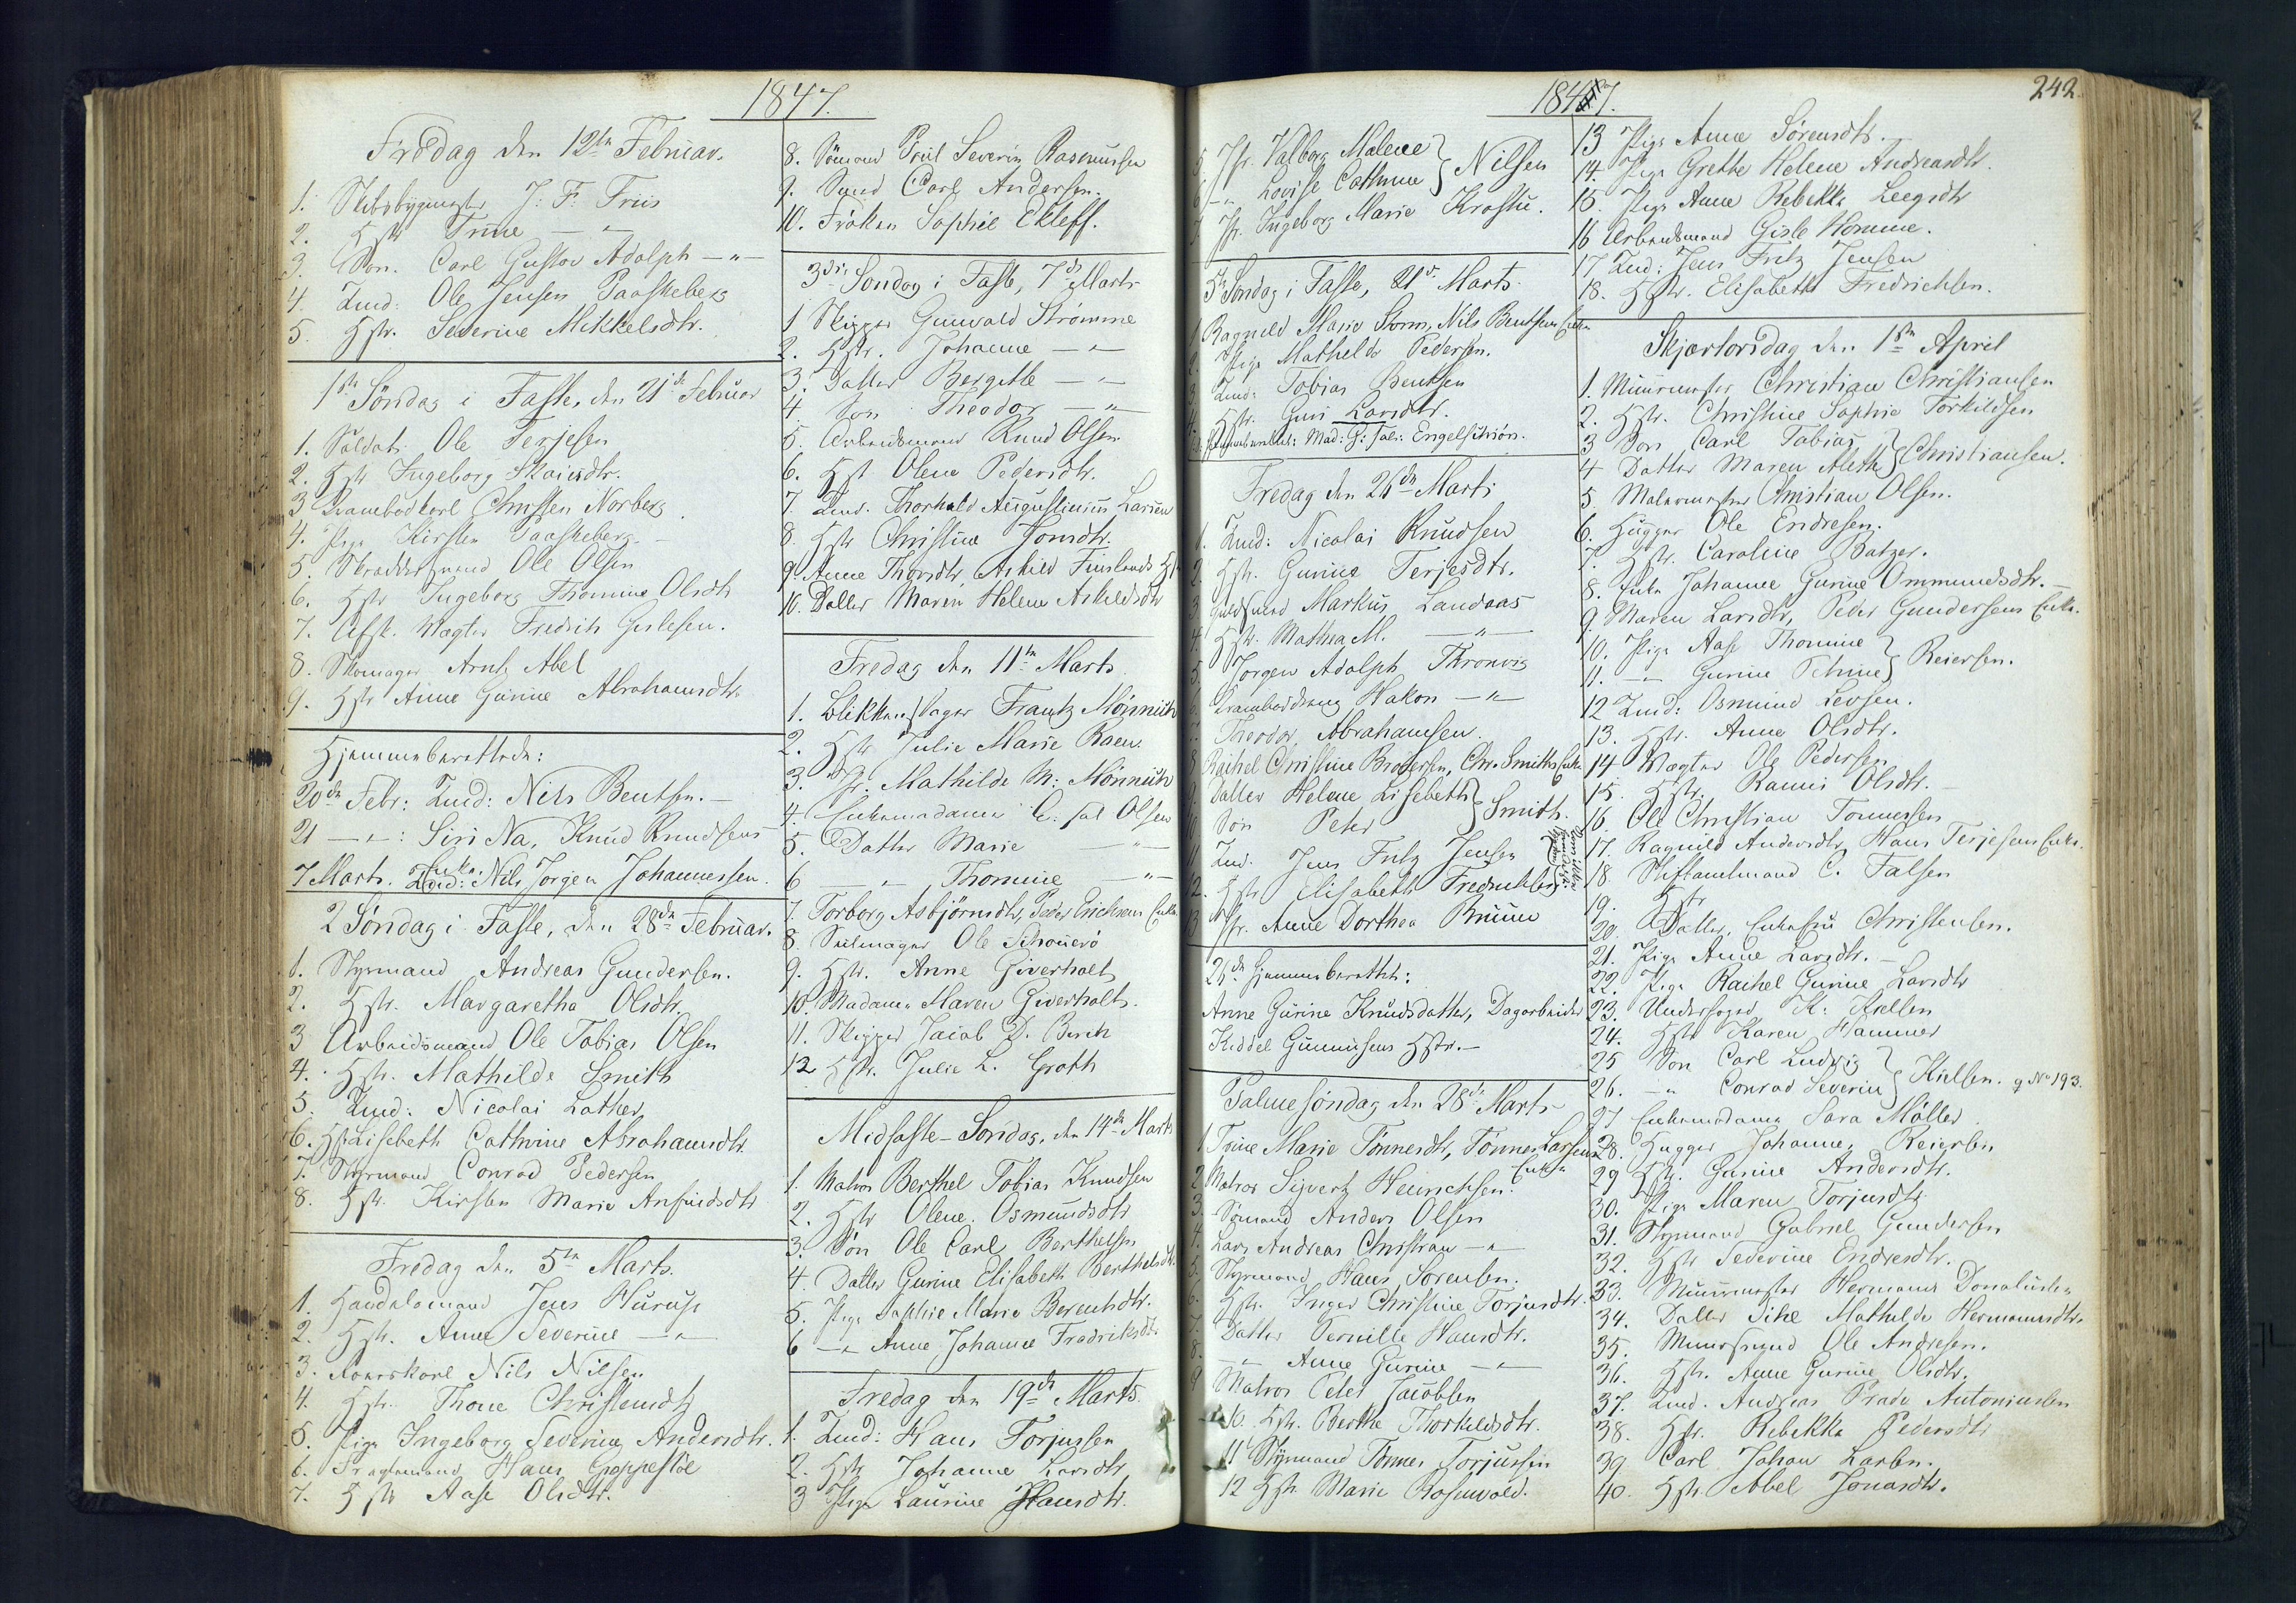 1847.
Fredag den 12te Februar.
1. Skibsbygmester J: F: Friis
2. Hstr Trine — " —
3. Søn. Carl Gustav Adolph — " —
4. Ind: Ole Jensen Paaskeberg
5. Hstr. Severine Mikkelsdtr.
1ste Søndag i Faste, den 21de Februar
1. Soldat Ole Terjesen
2. Hstr Ingeborg
3 Krambodkarl Christen Norberg
4. Pige Kirsten Paaskeberg. —
5. Skræddersvend Ole Olsen
6. Hstr Ingeborg Thomine Olsdtr
7. Afsk. Vægter Fredrik Gislesen.
8. Skomager Arnt Abel
9. Hstr Anne Gurine Abrahamsdtr.
Hjemmeberettede:
20de Febr: Ind: Nils Bentsen. —
21 — " — : Siri Na, Knud Knudsens Enke.
7 Marts. Ind: Nils Jørgen Johannessen.
2 Søndag i Faste, den 28de Februar.
1. Styrmand Andreas Gundersen.
2. Hstr. Margaretha Olsdtr.
3 Arbeidsmand Ole Tobias Olsen
4. Hstr. Mathilde Smith
5. Ind: Nicolai Lather
6. Hstr Lisebeth Cathrine Abrahamsdtr.
7. Styrmand Conrad Pedersen
8. Hstr. Kirsten Marie Anfindsdtr
Fredag den 5te Marts.
1. Handelsmand Jens
2. Hstr. Anne Severine — " —
3. Nils Nilsen
4. Hstr. Thone Christensdtr
5. Pige Ingeborg Severine Andersdtr.
6. Hans Groppestøl
7. Hstr Aase Olsdtr.
8. Sømand Poul Severin Rasmussen
9. Svend Carl Andersen.
10. Frøken Sophie Ekleff.
3die Søndag i Faste, 7de Marts
1 Skipper Gunvald Strømme
2. Hstr. Johanne — " —
3. Datter Bergitte — " —
4. Søn Theodor — " —
5. Arbeidsmand Knud Olsen
6. Hstr Olene Pedersdtr.
7. Ind. Thorvald Augustinius Larsen
8. Hstr Christine Jonsdtr.
9. Anne Thorsdtr, Askild Finslands Hstr
10. Datter Maren Helene Askildsdtr
Fredag den 11te Marts
1. Blikkenslager Frantz Mønnich
2. Hstr Julie Marie Raen.
3. Jfr. Mathilde M: Mønnich
4. Enkemadame C. sal Olsen
5. Datter Marie — " —
6 — " — Thomine — " —
7. Torborg Asbjørnsdtr, Peder Erichsens Enke
8. Seilmager Ole Schouerø
9. Hstr. Anne Giverholt
10. Madame Maren Giverholt.
11. Skipper Jacob D. Berck
12 Hstr. Julie L. Groth
Midfaste-Søndag, den 14de Marts
1. Matros Berthel Tobias Knudsen
2. Hstr Olene Osmundsdtr
3. Søn Ole Carl Berthelsen
4. Datter Gurine Elisabeth Berthelsdtr.
5. Pige Sophie Marie Berentsdtr.
6 — " Anne Johanne Fredriksdtr.
Fredag den 19de Marts.
1. Ind: Hans Torjussen
2. Hstr Johanne Larsdtr
3 Pige Laurine Hansdtr.
1847.
242.
5. Jfr. Valborg Malene } Nilsen
6 — " — Lovise Cathrine
7 Jfr. Ingeborg Marie Krostu.
5te Søndag i Faste, 21de Marts
1 Ragnild Marie Storm, Nils Bentsens Enke
2. Pige Mathilde Pedersen.
3. Ind: Tobias Bentsen
4. Hstr. Guri Larsdtr.
Hjemmeberettet: Mad: G: Sal: Engelschiøn.
Fredag den 26de Marts
1. Ind: Nicolai Knudsen
2. Hstr. Gurine Terjesdtr.
3 Guldsmed Markus Landaas
4. Hstr. Mathea M. — " —
5. Jørgen Adolph Thronvig
6 Krambodsvend Hakon — " —
7. Theodor Abrahamsen.
8 Rachel Christine Brodersen, Chr. Smiths Enke
9. Datter Helene Lisebeth } Smith.
10 Søn Peter
11 Ind. Jens Fritz Jensen
12. Hstr Elisabeth Fredrichsen
13 Jfr. Anne Dorthea Bruun
26de Hjemmeberettet:
Anne Gurine Knudsdatter, Dagarbeider
Keddel Gunnusens Hstr. —
Palmesøndag den 28de Marts
1 Trine Marie Tønnesdtr, Tønnes Larsens Enke
2 Matros Sivert Heinrichsen.
3. Sømand Anders Olsen
4. Lars Andreas Christian — " —
5. Styrmand Hans Sørensen.
6. Hstr. Inger Christine Torjusdtr.
7. Datter Pernille Hansdtr.
8. " Anne Gurine — " —
9 Matros Peter Jacobsen
10. Hstr. Bertha Thorkildsdtr.
11 Styrmand Tønnes Torjussen
12 Hstr Marie Rosenvold.
13 Pige Anne Sørensdtr.
14. Pige Grethe Helene Andreasdtr.
15. Pige Anne Rebekka Leegsdtr
16 Arbeidsmand Gisle Homme.
17. Ind: Jens Fritz Jensen
18. Hstr. Elisabeth Fredrichsen.
Skjærtorsdag den 1ste April
1. Muurmester Christian Christiansen
2. Hstr. Christine Sophie Torkildsen
3 Søn Carl Tobias } Christiansen.
4 Datter Maren Alethe
5. Malermester Christian Olsen.
6. Hugger Ole Endresen.
7. Hstr. Caroline Batzer.
8. Enke Johanne Gurine Ommundsdtr. —
9. Maren Larsdtr, Peder Gundersens Enke.
10. Pige Aase Thomine } Reiersen.
11. — " — Gurine Petrine
12 Ind: Osmund Levsen.
13. Hstr. Anne Olsdtr.
14 Vægter Ole Pedersen
15. Hstr. Rannei Olsdtr. —
16. Ole Christian Tønnessen
17. Ragnild Andersdtr, Hans Terjesens Enke.
18. Stiftamtmand C. Falsen
19. Hstr
20. Datter, Enkefru Christensen.
21. Pige Anne Larsdtr. —
22. Pige Rachel Gurine Larsdtr
23. Underfoged K: Kiellsen
24. Hstr Karen Hammer
25 Søn Carl Ludvig } Kielsen. g No 193.
26. — " Conrad Severin
27 Enkemadame Sara Møller
28. Hugger Johannes Reiersen
29 Hstr. Gurine Andersdtr.
30. Pige Maren Torjusdtr.
31. Styrmand Gabriel Gundersen
32. Hstr Severine Endresdtr.
33. Muurmester Hermann Donatiussen
34. Datter Mathilde Hermannsdtr.
35. Muursvend Ole Andresen.
36. Hstr. Anne Gurine Olsdtr.
37. Ind. Andreas Prade Antoniussen
38. Hstr. Rebekka Pedersdtr
39 Carl Johan Larsen.
40. Hstr. Abel Jonasdtr.